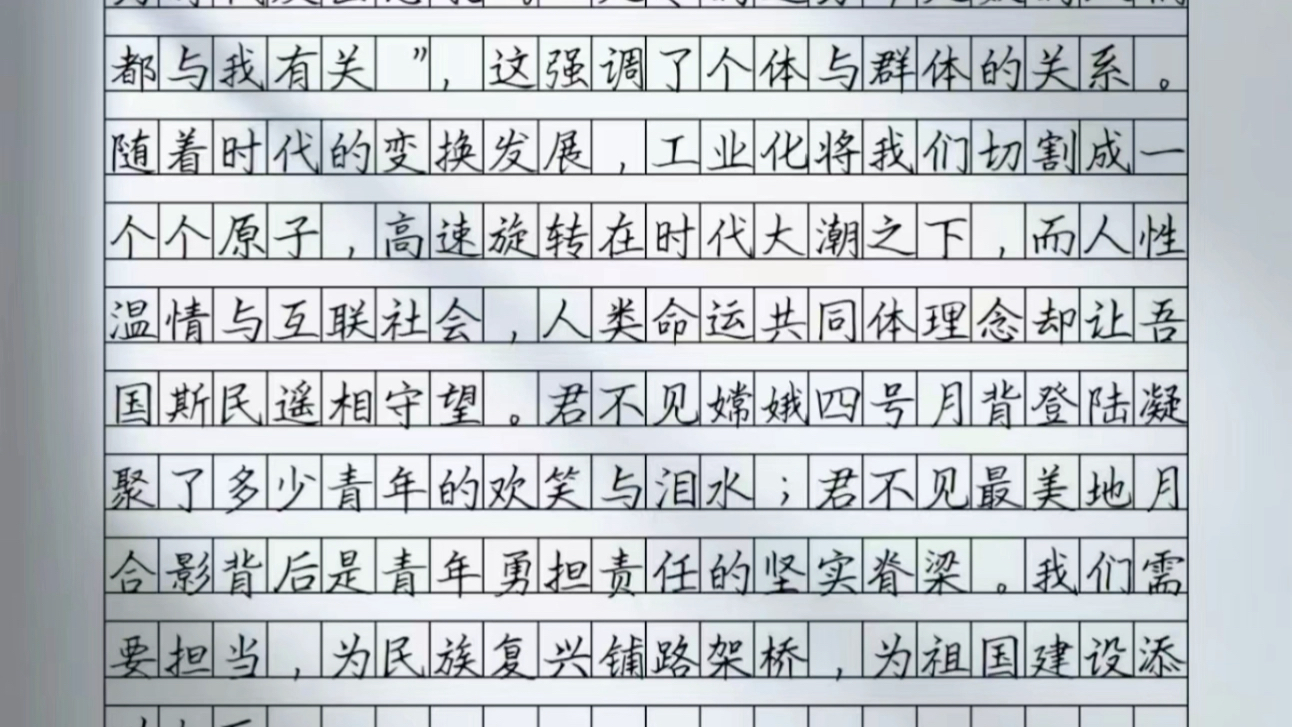 都与我有关”,这强调了个体与群体的关系。
随着时代的变换发展,工业化将我们切割成一
个个原子,高速旋转在时代大潮之下,而人性
温情与互联社会,人类命运共同体理念却让吾
国斯民遥相守望。君不见嫦娥四号月背登陆凝
聚了多少青年的欢笑与泪水;君不见最美地月
合影背后是青年勇担责任的坚实脊梁。我们需
要担当,为民族复兴铺路架桥,为祖国建设添